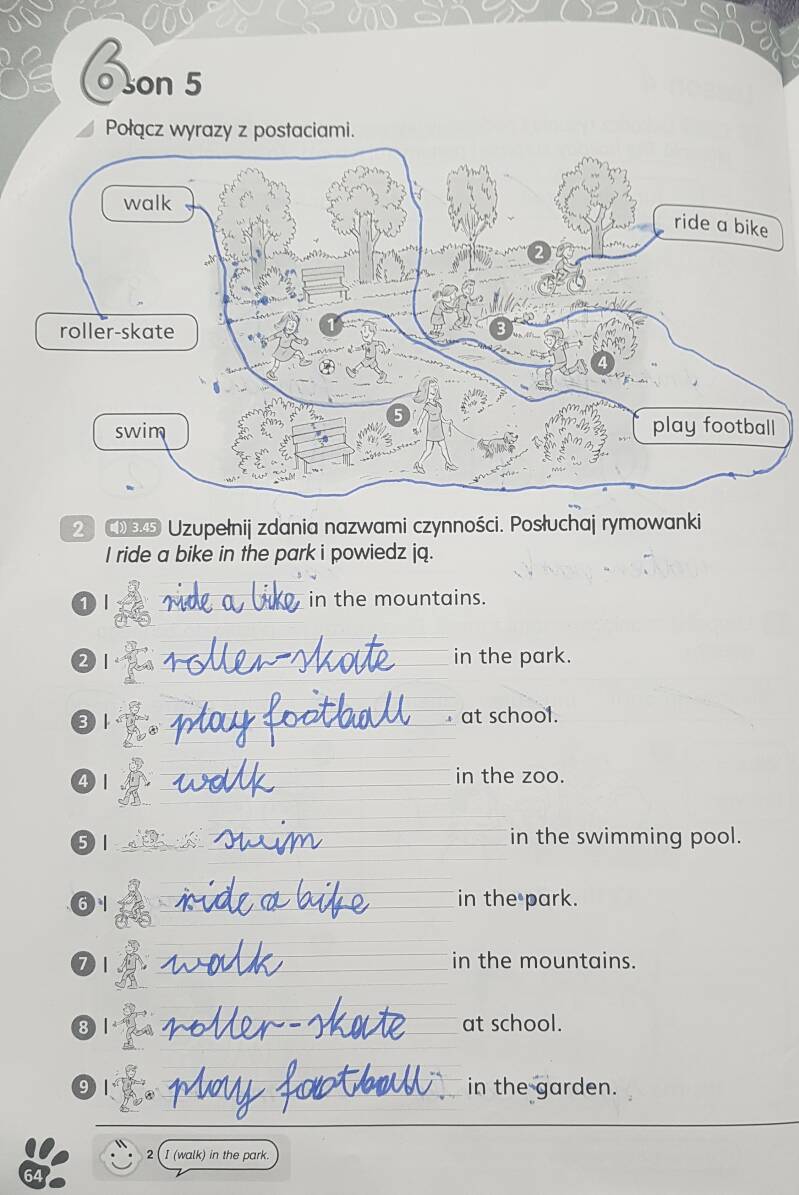 6
Lesson 5
Połącz wyrazy z postaciami.
walk
ride a bike
2
roller-skate
1
3
4
5
swim
play football
2 3.45 Uzupełnij zdania nazwami czynności. Posłuchaj rymowanki
I ride a bike in the park i powiedz ją.
1 I ride a bike in the mountains.
2 I roller-skate in the park.
3 I play football at school.
4 I walk in the zoo.
5 I swim in the swimming pool.
6 I ride a bike in the park.
7 I walk in the mountains.
8 I roller-skate at school.
9 I play football in the garden.
2 I (walk) in the park.
64